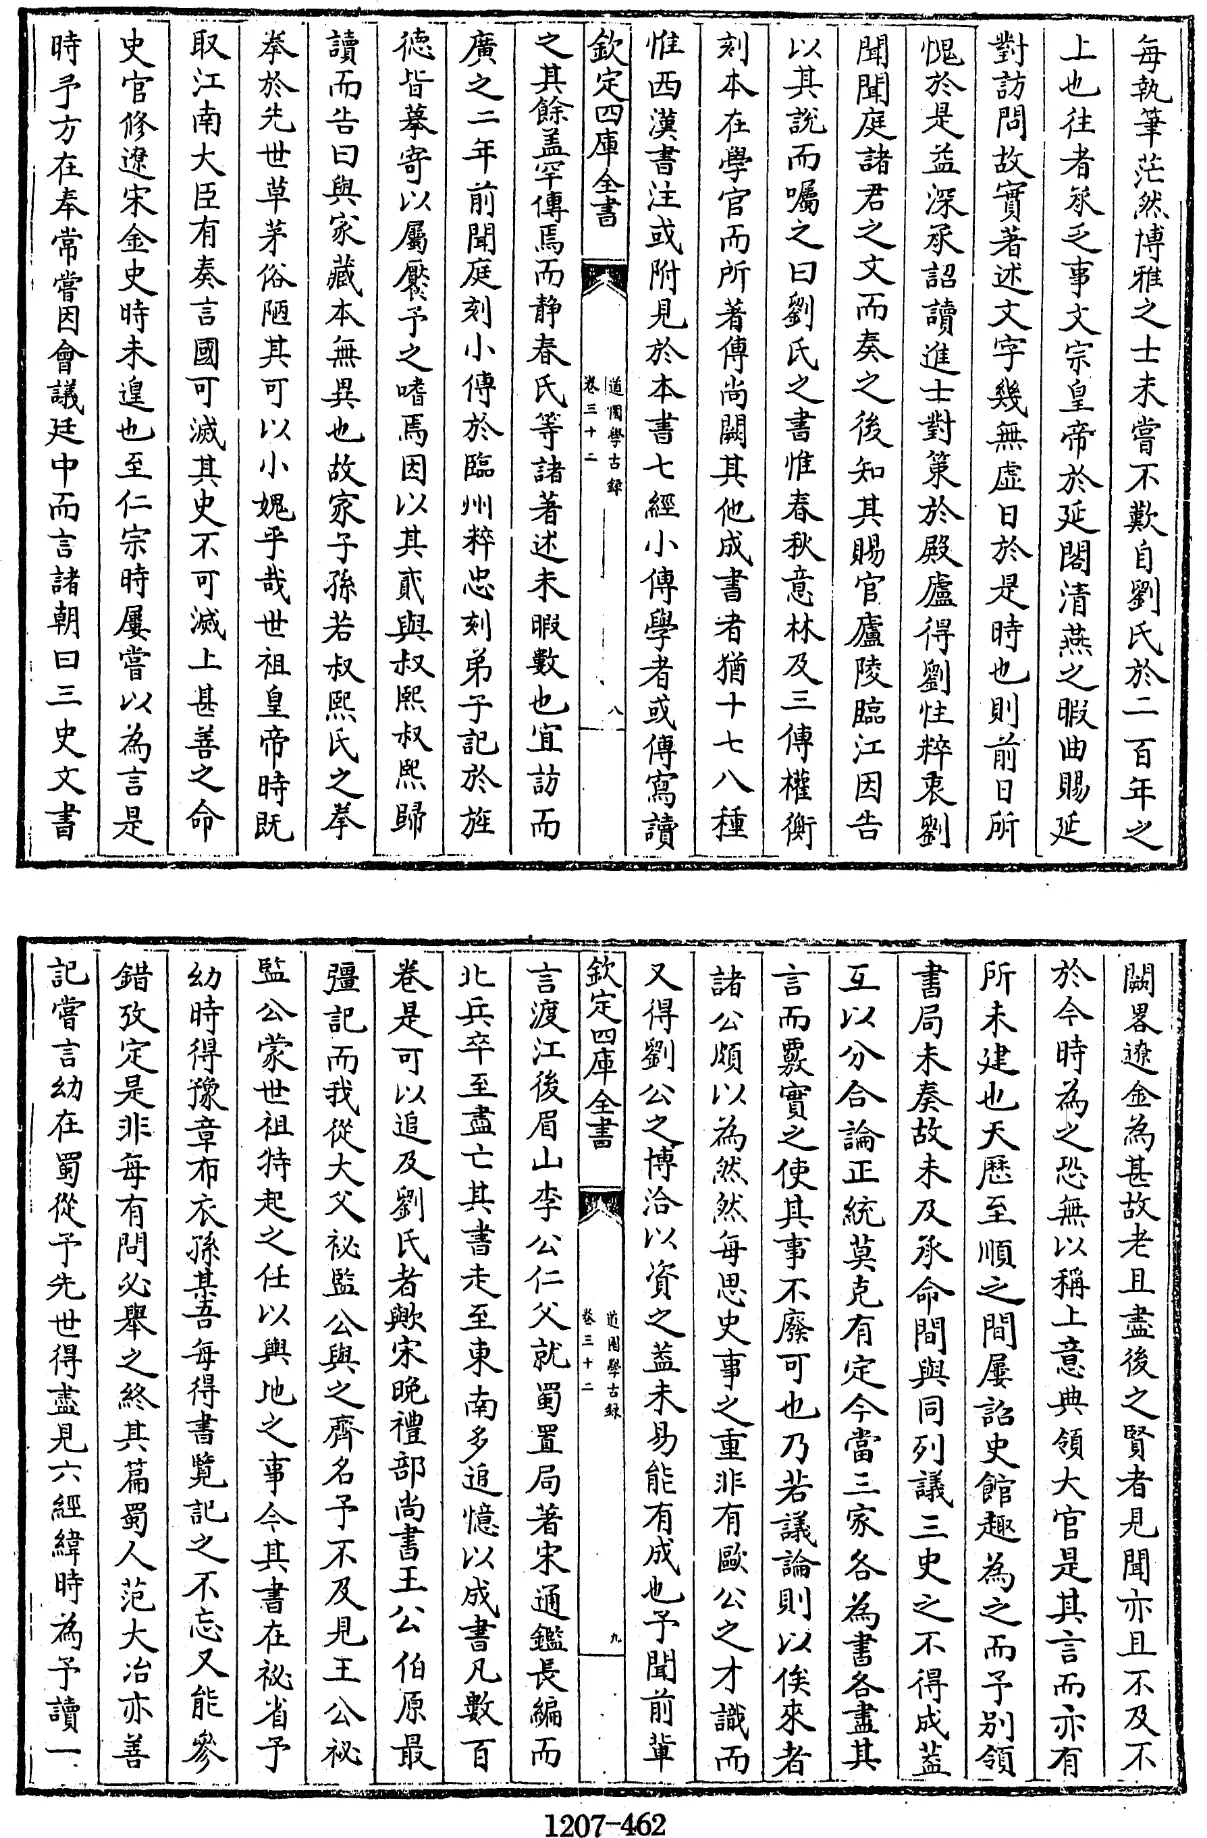 每執筆茫然博雅之士未嘗不歎自劉氏於二百年之
上也往者承乏事文宗皇帝於延閣清燕之暇曲賜延
對訪問故實著述文字幾無虚日於是時也則前日所
愧於是益深承詔讀進士對策於殿廬得劉性粹衷劉
聞聞庭諸君之文而奏之後知其賜官廬陵臨江因告
以其說而囑之曰劉氏之書惟春秋意林及三傳權衡
刻本在學官而所著傳尚闕其他成書者猶十七八種
惟西漢書注或附見於本書七經小傳學者或傳寫讀
欽定四庫全書
道園學古録
卷三十二
八
之其餘盖罕傳焉而静春氏等諸著述未暇數也宜訪而
廣之二年前聞庭刻小傳於臨州粹忠刻弟子記於旌
德皆摹寄以屬饜予之嗜焉因以其貳與叔熙叔熙歸
讀而告曰與家藏本無異也故家子孫若叔熙氏之拳
拳於先世草茅俗陋其可以小媿乎哉世祖皇帝時既
取江南大臣有奏言國可滅其史不可滅上甚善之命
史官修遼宋金史時未遑也至仁宗時屢嘗以為言是
時予方在奉常嘗因會議廷中而言諸朝曰三史文書
闕畧遼金為甚故老且盡後之賢者見聞亦且不及不
於今時為之恐無以稱上意典領大官是其言而亦有
所未建也天歷至順之間屢詔史館趣為之而予别領
書局未奏故未及承命間與同列議三史之不得成葢
互以分合論正統莫克有定今當三家各為書各盡其
言而覈實之使其事不廢可也乃若議論則以俟來者
諸公頗以為然然每思史事之重非有歐公之才識而
又得劉公之博洽以資之葢未易能有成也予聞前輩
欽定四庫全書
道園學古録
卷三十二
九
言渡江後眉山李公仁父就蜀置局著宋通鑑長編而
北兵卒至盡亡其書走至東南多追憶以成書凡數百
卷是可以追及劉氏者歟宋晚禮部尚書王公伯原最
彊記而我從大父祕監公與之齊名予不及見王公祕
監公蒙世祖特起之任以輿地之事今其書在祕省予
幼時得豫章布衣孫某吾每得書覽記之不忘又能參
錯攷定是非每有問必舉之終其篇蜀人范大冶亦善
記嘗言幼在蜀從予先世得盡見六經緯時為予讀一
1207-462